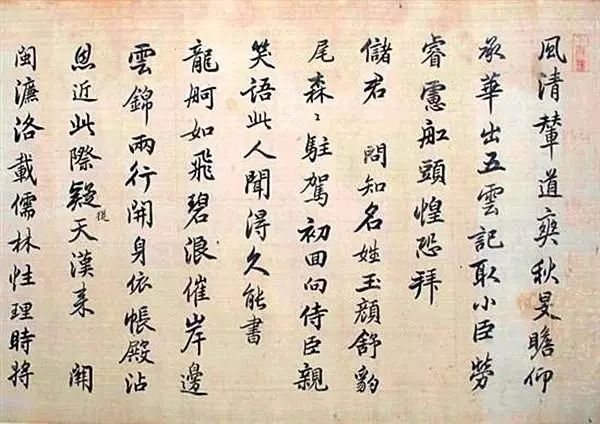 風清輦道奭秋旻瞻仰
承華出五雲記取小臣勞
睿慮舡頭惶恐拜
儲君 問知名姓玉顔舒豹
尾森〻駐駕初回向侍臣親
笑語此人聞得久能書
龍舸如飛碧浪催岸邊
雲錦兩行開身依帳殿沾
恩近此際疑從天漢来 開
閩濂洛載儒林性理時將